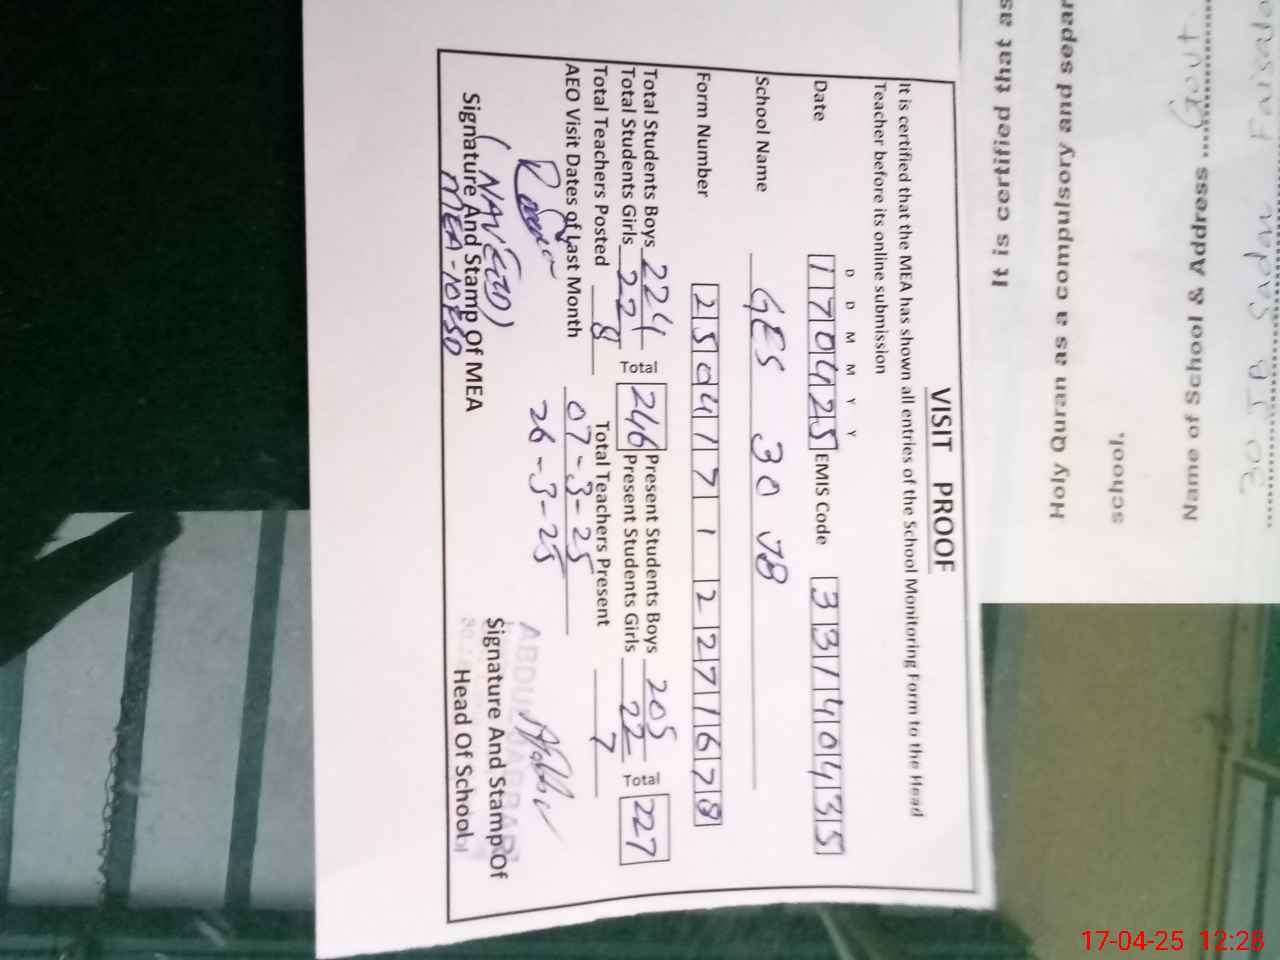 VISIT PROOF
It is certified that the MEA has shown all entries of the School Monitoring Form to the Head
Teacher before its online submission
D D M M Y Y
Date 170425 EMIS Code 33140435
School Name GES 30 JB
Form Number 25041712271678
Total Students Boys 224 Total 246 Present Students Boys 205 Total 227
Total Students Girls 22 Present Students Girls 22
Total Teachers Posted 8 Total Teachers Present 7
AEO Visit Dates of Last Month 07-3-25
26-3-25
(NAVEED)
Signature And Stamp Of MEA
MEA-
ABDUL
Signature And Stamp Of
Head Of School
It is certified that as
Holy Quran as a compulsory and separ
school.
Name of School & Address Govt
30 JB
17-04-25 12:28